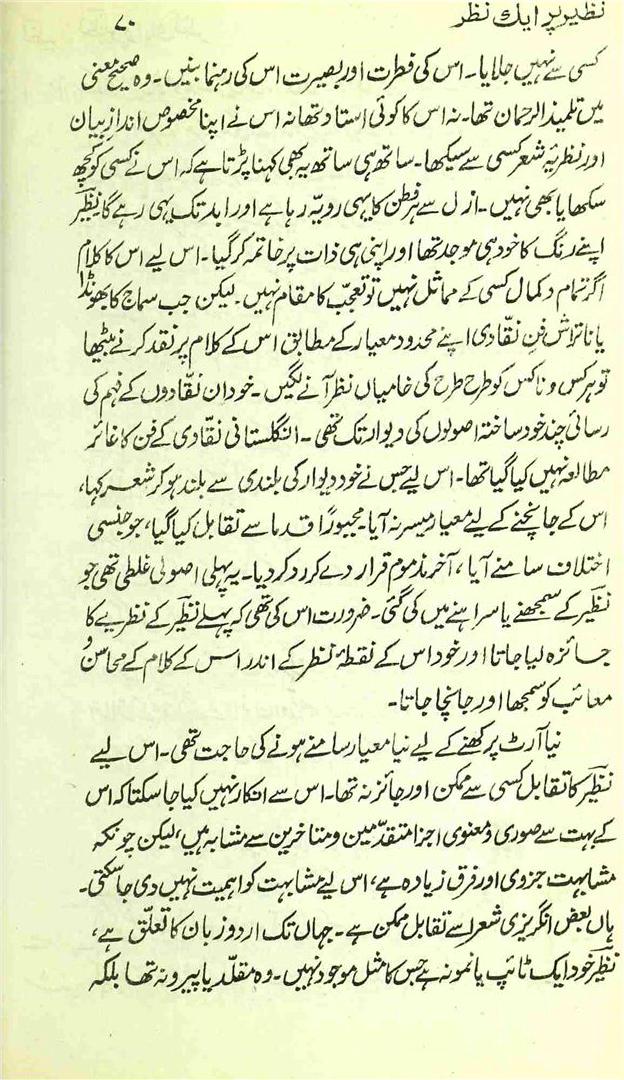 نظیر پر ایک نظر
۷۰
کسی سے نہیں جلایا۔ اس کی فطرت اور بصیرت اس کی رہنما بنیں۔ وہ صحیح معنی
میں تلمیذ الرحمان تھا۔ نہ اس کا کوئی استاد تھا نہ اس نے اپنا مخصوص اندازِ بیان
اور نظریۂ شعر کسی سے سیکھا۔ ساتھ ہی ساتھ یہ بھی کہنا پڑتا ہے کہ اس نے کسی کو کچھ
سکھایا بھی نہیں۔ ازل سے ہر فطن کا یہی رویہ رہا ہے اور ابد تک یہی رہے گا۔ نظیرؔ
اپنے رنگ کا خود ہی موجد تھا اور اپنی ہی ذات پر خاتمہ کر گیا۔ اس لیے اس کا کلام
اگر تمام و کمال کسی کے مماثل نہیں تو تعجب کا مقام نہیں۔ لیکن جب سماج کا بھونڈا
یا ناتراش فنِ نقّادی اپنے محدود معیار کے مطابق اس کے کلام پر نقد کرنے بیٹھا
تو ہر کس و ناکس کو طرح طرح کی خامیاں نظر آنے لگیں۔ خود ان نقّادوں کے فہم کی
رسائی چند خود ساختہ اصولوں کی دیوار تک تھی۔ انگلستانی نقّادی کے فن کا غائر
مطالعہ نہیں کیا گیا تھا۔ اس لیے جس نے خود دیوار کی بلندی سے بلند ہو کر شعر کہا،
اس کے جانچنے کے لیے معیار میسر نہ آیا۔ مجبوراً قدما سے تقابل کیا گیا، جو جنسی
اختلاف سامنے آیا، آخر مذموم قرار دے کر رد کر دیا۔ یہ پہلی اصولی غلطی تھی جو
نظیرؔ کے سمجھنے یا سراہنے میں کی گئی۔ ضرورت اس کی تھی کہ پہلے نظیرؔ کے نظریے کا
جائزہ لیا جاتا اور خود اس کے نقطۂ نظر کے اندر اس کے کلام کے محاسن و
معائب کو سمجھا اور جانچا جاتا۔
نیا آرٹ پرکھنے کے لیے نیا معیار سامنے ہونے کی حاجت تھی۔ اس لیے
نظیرؔ کا تقابل کسی سے ممکن اور جائز نہ تھا۔ اس سے انکار نہیں کیا جا سکتا کہ اس
کے بہت سے صوری و معنوی اجزا متقدّمین و متاخرین سے مشابہ ہیں، لیکن چونکہ
مشابہت جزوی اور فرق زیادہ ہے، اس لیے مشابہت کو اہمیت نہیں دی جا سکتی۔
ہاں بعض انگریزی شعرا سے تقابل ممکن ہے۔ جہاں تک اردو زبان کا تعلّق ہے،
نظیرؔ خود ایک ٹائپ یا نمونہ ہے جس کا مثل موجود نہیں۔ وہ مقلّد یا پیرو نہ تھا بلکہ